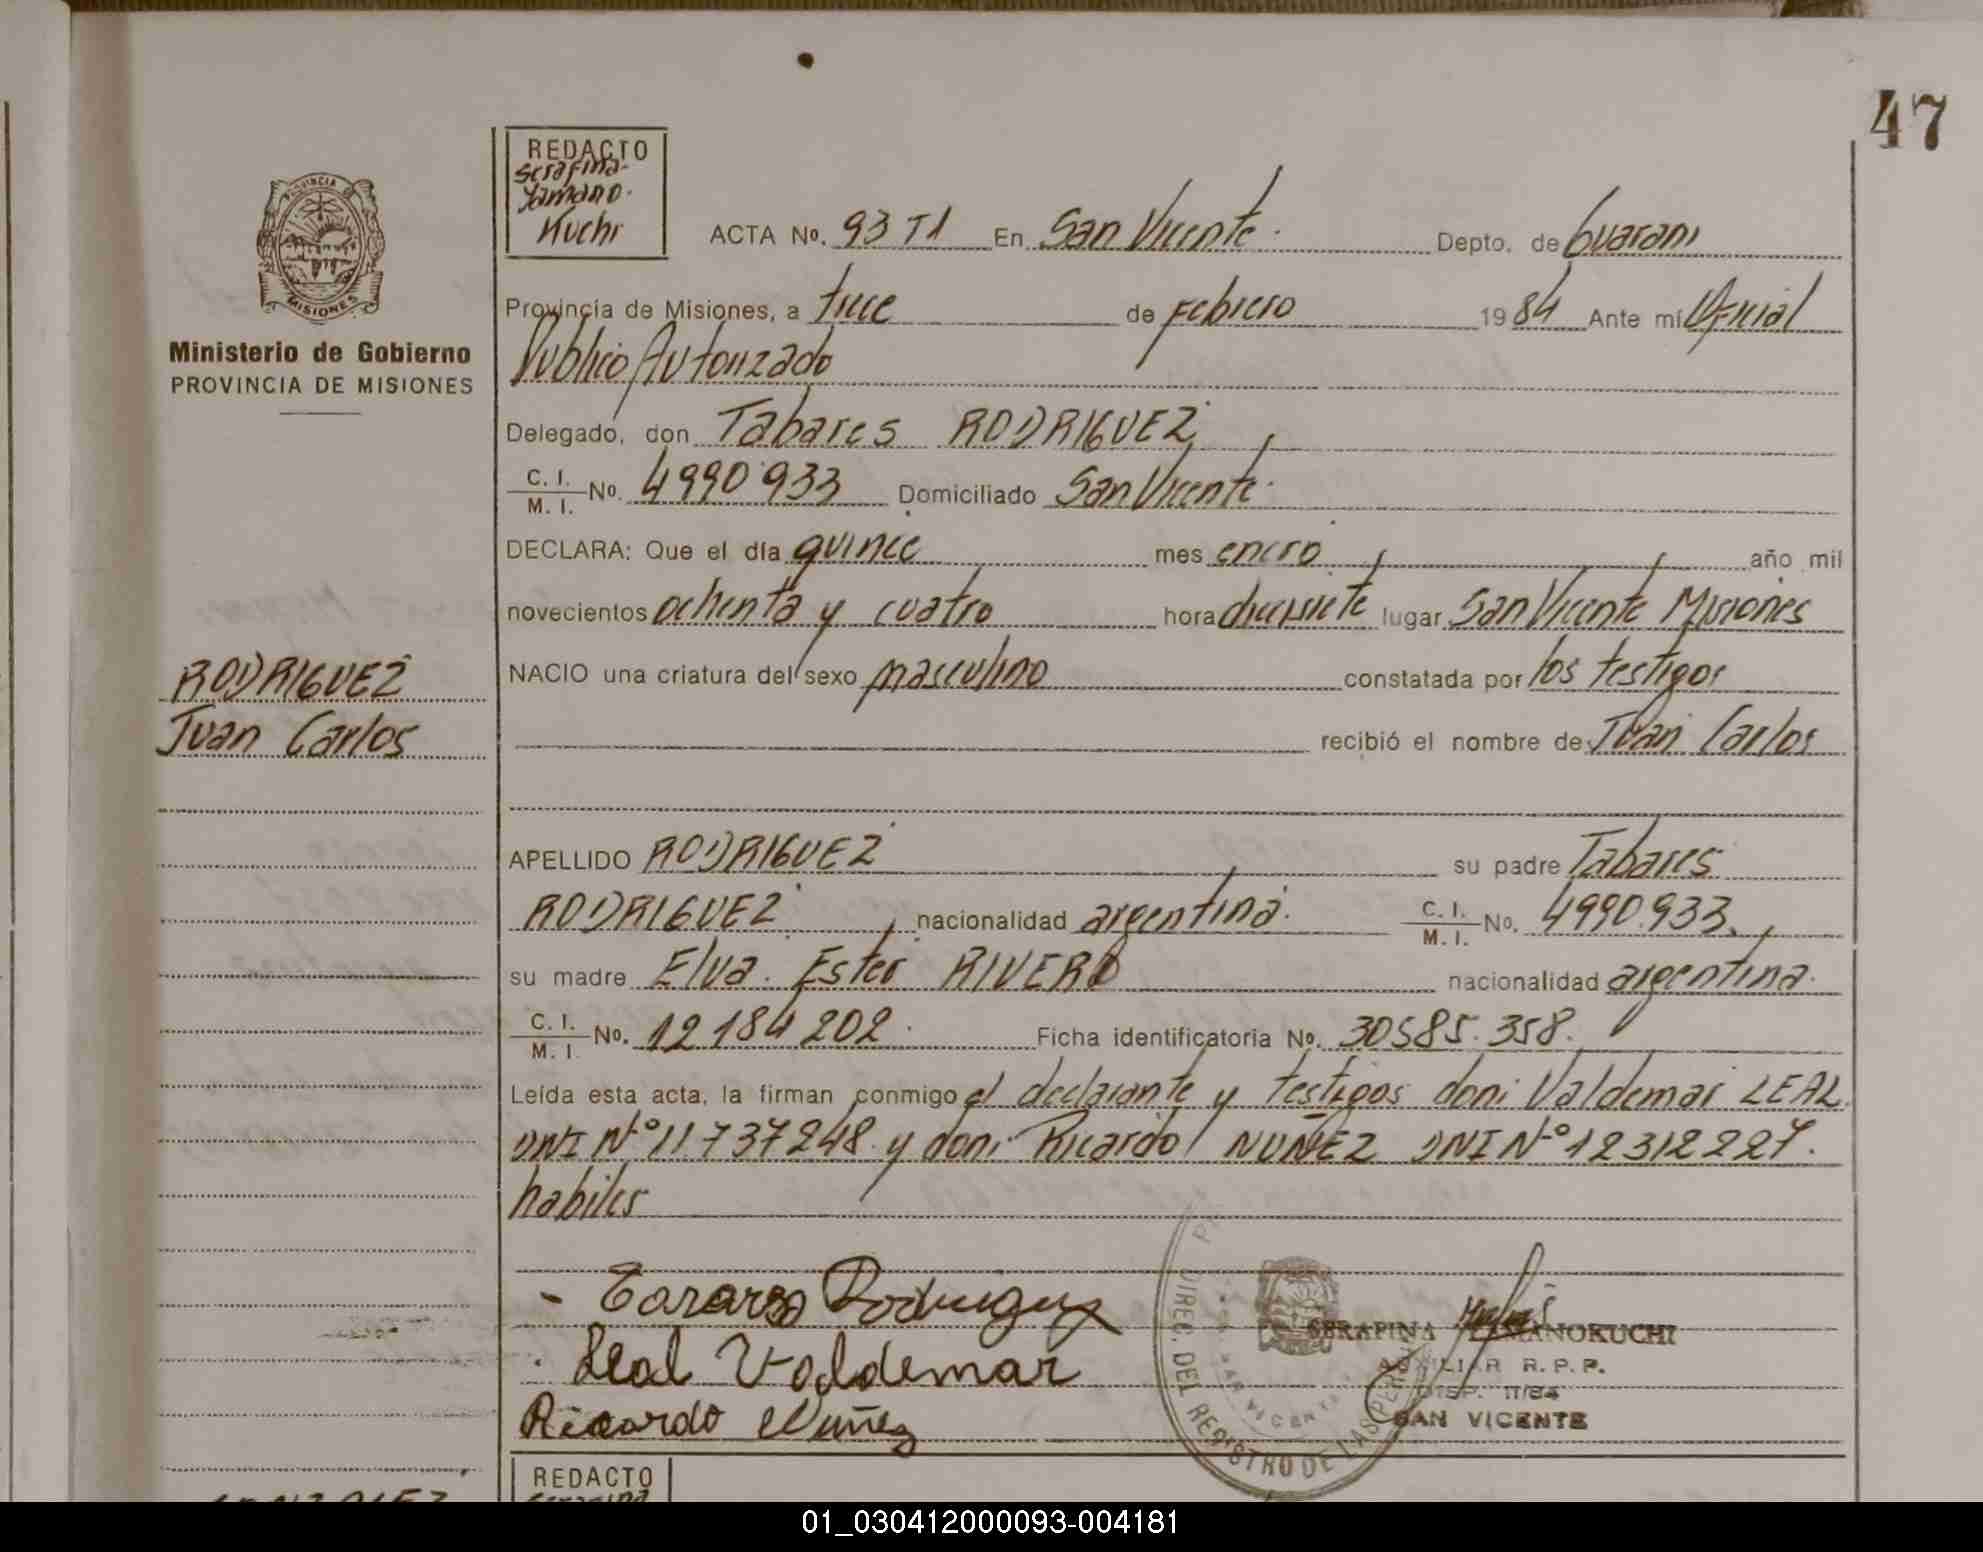 47
REDACTO
Serafina
Yamano.
Kuchi
ACTA No. 93 T1 En San Vicente. Depto. de Guarani
PROVINCIA DE MISIONES
Provincia de Misiones, a trece de Febrero 1984 Ante mí Oficial
Ministerio de Gobierno
PROVINCIA DE MISIONES
Publico Autorizado
Delegado, don Tabares RODRIGUEZ
C. I.
M. I. No. 4990 933 Domiciliado San Vicente.
DECLARA: Que el día quince mes enero año mil
novecientos ochenta y cuatro hora diecisiete lugar San Vicente Misiones
RODRIGUEZ
Juan Carlos
NACIO una criatura del sexo masculino constatada por los testigos
recibió el nombre de Juan Carlos
APELLIDO RODRIGUEZ su padre Tabares
RODRIGUEZ nacionalidad argentina. C. I.
M. I. No. 4990.933.
su madre Elva Ester RIVERO nacionalidad argentina.
C. I.
M. I. No. 12 184 202. Ficha identificatoria No. 30585.358.
Leída esta acta, la firman conmigo el declarante y testigos don: Valdemar LEAL
DNI Nº 11 737 248 y don: Ricardo NUÑEZ DNI Nº 12312227.
habiles
Rodriguez
Leal Valdemar
Ricardo Nuñez
DIREC. DEL REGISTRO DE LAS PER
SAN VICENTE
SERAFINA YAMANOKUCHI
AUXILIAR R. P. P.
DISP. 11/84
SAN VICENTE
REDACTO
Serafina
01_030412000093-004181